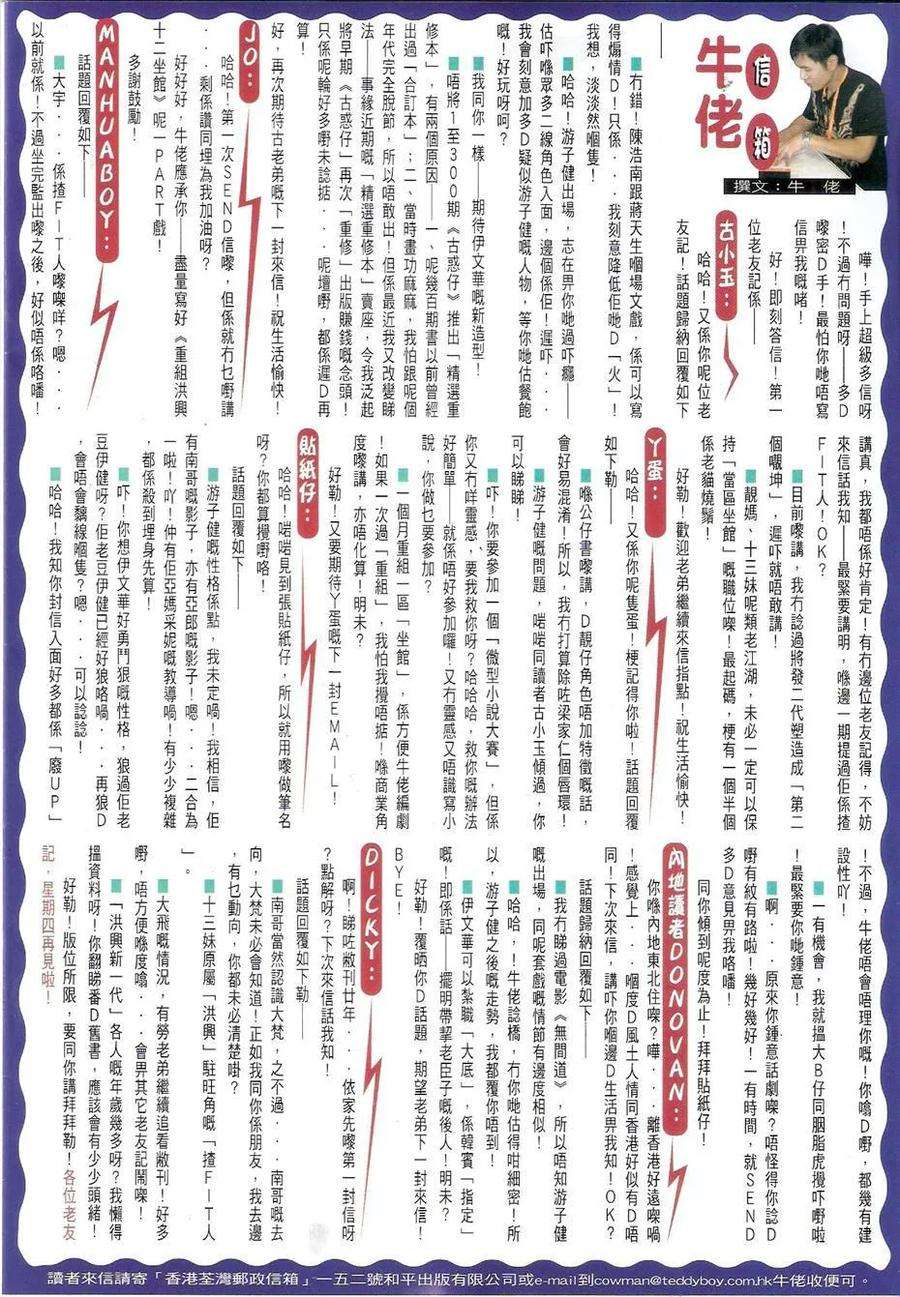 牛佬
信箱
撰文：牛 佬
嘩！手上超級多信呀
！不過冇問題呀——多D
嚟密D手！最怕你哋唔寫
信畀我嘅啫！
好！即刻答信！第一
位老友記係——
古小玉：
哈哈！又係你呢位老
友記！話題歸納回覆如下
——
■冇錯！陳浩南跟蔣天生嗰場文戲，係可以寫
得煽情D！只係．．我刻意降低佢哋D「火」！
我想，淡淡然嗰隻！
■哈哈！游子健出場，志在畀你哋過吓癮——
估吓喺眾多二線角色入面，邊個係佢！遲吓．．
我會刻意加多D疑似游子健嘅人物，等你哋估餐飽
嘅！好玩呀呵？
■我同你一樣——期待伊文華嘅新造型！
■唔將1至300期《古惑仔》推出「精選重
修本」，有兩個原因——一、呢幾百期書以前曾經
出過「合訂本」！；二、當時畫功麻麻，我怕跟呢個
年代完全脫節，所以唔敢出！但係最近我又改變睇
法——事緣近期嘅「精選重修本」賣座，令我泛起
將早期《古惑仔」再次「重修」出版賺錢嘅念頭！
只係呢輪好多嘢未諗掂．．呢壇嘢，都係遲D再
算！
好，再次期待古老弟嘅下一封來信！祝生活愉快！
JO：
哈哈！第一次SEND信嚟，但係就冇乜嘢講
．．．剩係讚同埋為我加油呀？
好好好，牛佬應承你——盡量寫好《重組洪興
十二坐館》呢一PART戲！
多謝鼓勵！
MANHUABOY：
話題回覆如下——
■大宇．．．係揸FIT人嚟㗎咩？嗯．．．
以前就係！不過坐完監出嚟之後，好似唔係咯噃！
講真，我都唔係好肯定！有冇邊位老友記得，不妨
來信話我知——最緊要講明，喺邊一期提過佢係揸
FIT人！OK？
■目前嚟講，我冇諗過將發二代塑造成「第二
個𡃁坤」，遲吓就唔敢講！
■靚媽、十三妹呢類老江湖，未必一定可以保
持「當區坐館」嘅職位㗎！最起碼，梗有一個半個
係老貓燒鬚！
好勒！歡迎老弟繼續來信指點！祝生活愉快！
丫蛋：
哈哈！又係你呢隻蛋！梗記得你啦！話題回覆
如下勒——
■喺公仔書嚟講，D靚仔角色唔加特徵嘅話，
會好易混淆！所以，我冇打算除咗梁家仁個唇環！
■游子健嘅問題，啱啱同讀者古小玉傾過，你
可以睇睇！
■吓！你要參加一個「微型小說大賽」，但係
你又冇咩靈感，要我救你呀？哈哈哈，救你嘅辦法
好簡單——就係唔好參加囉！又冇靈感又唔識寫小
說，你做乜要參加？
■一個月重組一區「坐館」，係方便牛佬編劇
！如果一次過「重組」，我怕我攪唔掂！喺商業角
度嚟講，亦唔化算！明未？
好勒！又要期待丫蛋嘅下一封EMAIL！
貼紙仔：
哈哈！啱啱見到張貼紙仔，所以就用嚟做筆名
呀？你都算攪嘢咯！
話題回覆如下——
■游子健嘅性格係點，我未定喎！我相信，佢
有南哥嘅影子，亦有亞郎嘅影子！嗯．．．二合為
一啦！吖！仲有佢亞媽采妮嘅教導喎！有少少複雜
，都係殺到埋身先算！
■吓！你想伊文華好勇鬥狠嘅性格，狠過佢老
豆伊健呀？佢老豆伊健已經好狠咯喎．．．再狠D
，會唔會黐線嗰隻？嗯．．．可以諗諗！
■哈哈！我知你封信入面好多都係「廢UP」
！不過，牛佬唔會唔理你嘅！你噏D嘢，都幾有建
設性吖！
■一有機會，我就搵大B仔同胭脂虎攪吓嘢啦
！最緊要你哋鍾意！
■啊．．．原來你鍾意話劇㗎？唔怪得你諗D
嘢有紋有路啦！幾好幾好！一有時間，就SEND
多D意見畀我咯噃！
同你傾到呢度為止！拜拜貼紙仔！
內地讀者DONOVAN：
你喺內地東北住㗎？嘩．．．離香港好遠㗎喎
！感覺上．．．嗰度D風土人情同香港好似有D唔
同！下次來信，講吓你嗰邊D生活畀我知！OK？
話題歸納回覆如下——
■我冇睇過電影《無間道》，所以唔知游子健
嘅出場，同呢套戲嘅情節有邊度相似！
■哈哈，！牛佬諗橋，冇你哋估得咁細密！所
以，游子健之後嘅走勢，我都覆你唔到！
■伊文華可以紮職「大底」，係韓賓「指定」
嘅！即係話——擺明帶挈老臣子嘅後人！明未？
好勒！覆晒你D話題，期望老弟下一封來信！
BYE！
DICKY：
啊！睇咗敝刊廿年．．依家先嚟第一封信呀
？點解呀？下次來信話我知！
話題回覆如下勒——
■南哥當然認識大梵，之不過．．．南哥嘅去
向，大梵未必會知道！正如我同你係朋友，我去邊
，有乜動向，你都未必清楚啩？
■十三妹原屬「洪興」駐旺角嘅「揸FIT人
」。
■大飛嘅情況，有勞老弟繼續追看敝刊！好多
嘢，唔方便喺度噏．．．會畀其它老友記鬧㗎！
■「洪興新一代」各人嘅年歲幾多呀？我懶得
搵資料呀！你翻睇番D舊書，應該會有少少頭緒！
好勒！版位所限，要同你講拜拜勒！各位老友
記，星期四再見啦！
讀者來信請寄「香港荃灣郵政信箱」一五二號和平出版有限公司或e-mail到cowman@teddyboy.com.hk牛佬收便可。